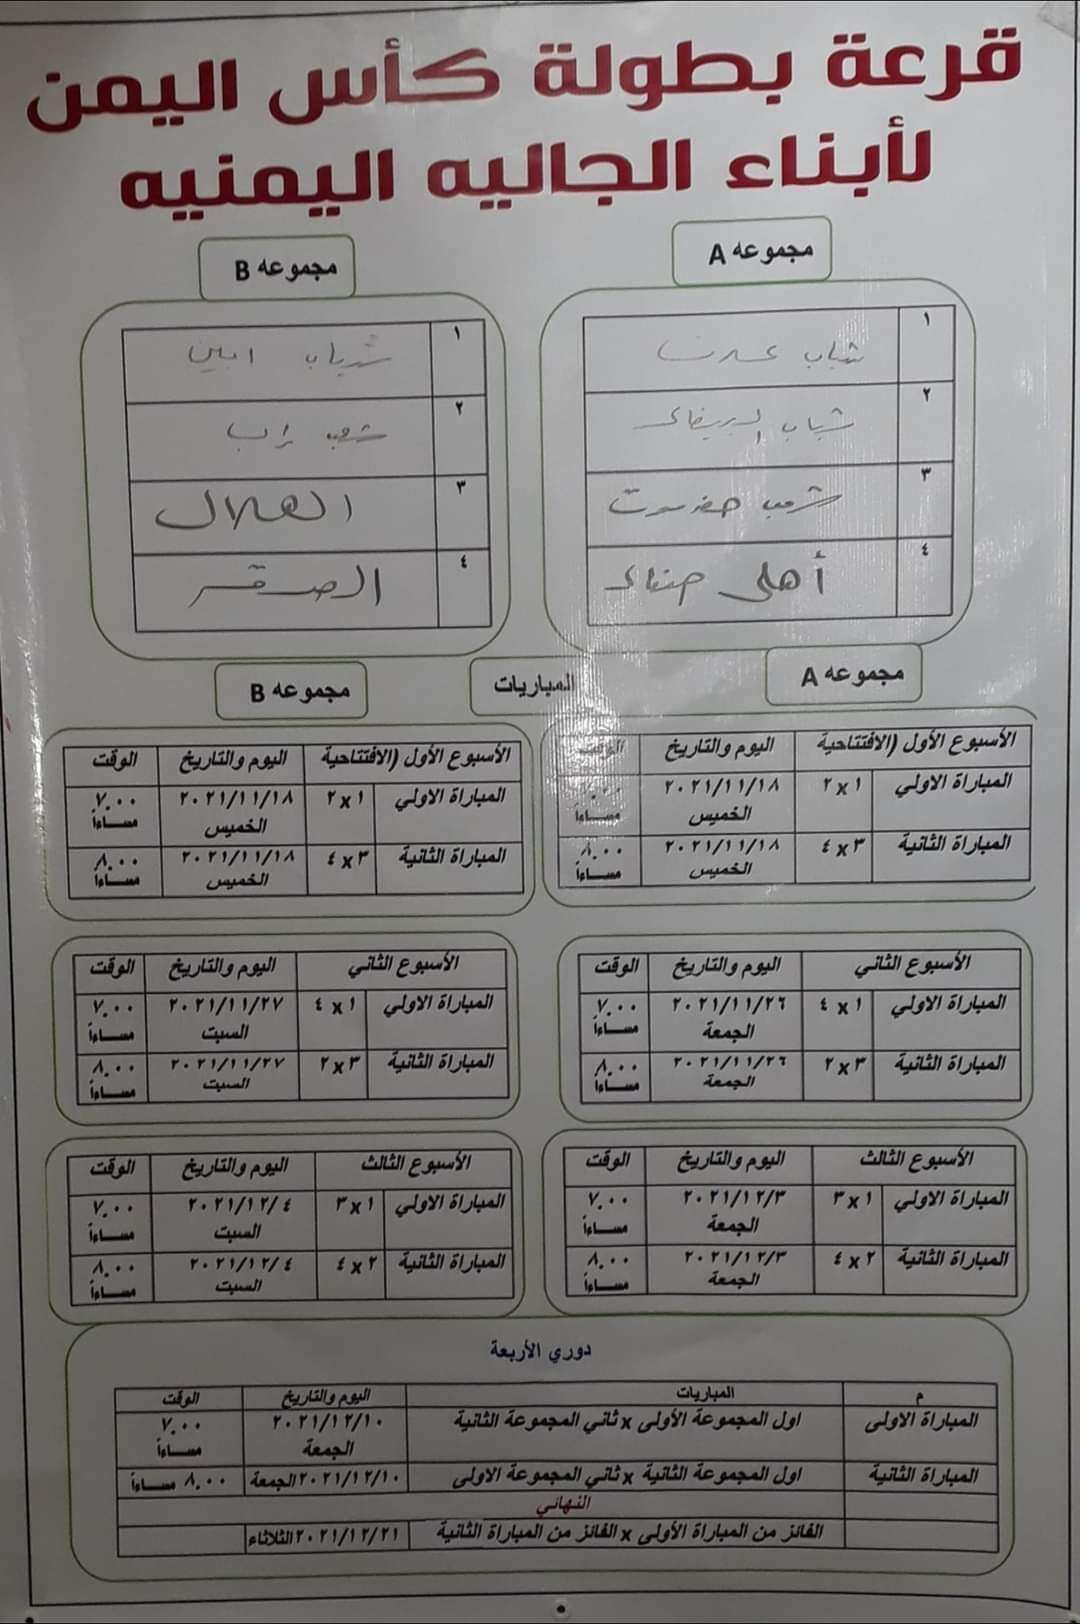 قرعة بطولة كأس اليمن
لأبناء الجاليه اليمنيه
مجموعه A
١ شباب عدن
٢ شباب البيضاء
٣ شعب حضرموت
٤ أهلي صنعاء
مجموعه B
١ شباب ابين
٢ شعب إب
٣ الهلال
٤ الصقر
المباريات
مجموعه A
الأسبوع الأول (الافتتاحية اليوم والتاريخ الوقت
المباراة الاولي ١ x ٢ ٢٠٢١/١١/١٨ الخميس مساءاً
المباراة الثانية ٣ x ٤ ٢٠٢١/١١/١٨ الخميس ٨.٠٠ مساءاً
مجموعه B
الأسبوع الأول (الافتتاحية اليوم والتاريخ الوقت
المباراة الاولي ١ x ٢ ٢٠٢١/١١/١٨ الخميس ٧.٠٠ مساءاً
المباراة الثانية ٣ x ٤ ٢٠٢١/١١/١٨ الخميس ٨.٠٠ مساءاً
الأسبوع الثاني اليوم والتاريخ الوقت
المباراة الاولي ١ x ٤ ٢٠٢١/١١/٢٦ الجمعة ٧.٠٠ مساءاً
المباراة الثانية ٣ x ٢ ٢٠٢١/١١/٢٦ الجمعة ٨.٠٠ مساءاً
الأسبوع الثاني اليوم والتاريخ الوقت
المباراة الاولي ١ x ٤ ٢٠٢١/١١/٢٧ السبت ٧.٠٠ مساءاً
المباراة الثانية ٣ x ٢ ٢٠٢١/١١/٢٧ السبت ٨.٠٠ مساءاً
الأسبوع الثالث اليوم والتاريخ الوقت
المباراة الاولي ١ x ٣ ٢٠٢١/١٢/٣ الجمعة ٧.٠٠ مساءاً
المباراة الثانية ٢ x ٤ ٢٠٢١/١٢/٣ الجمعة ٨.٠٠ مساءاً
الأسبوع الثالث اليوم والتاريخ الوقت
المباراة الاولي ١ x ٣ ٢٠٢١/١٢/٤ السبت ٧.٠٠ مساءاً
المباراة الثانية ٢ x ٤ ٢٠٢١/١٢/٤ السبت ٨.٠٠ مساءاً
دوري الأربعة
م المباريات اليوم والتاريخ الوقت
المباراة الاولى اول المجموعة الأولى x ثاني المجموعة الثانية ٢٠٢١/١٢/١٠ الجمعة ٧.٠٠ مساءاً
المباراة الثانية اول المجموعة الثانية x ثاني المجموعة الاولى ٢٠٢١/١٢/١٠ الجمعة ٨.٠٠ مساءاً
النهائي
الفائز من المباراة الأولى x الفائز من المباراة الثانية ٢٠٢١/١٢/٢١ الثلاثاء